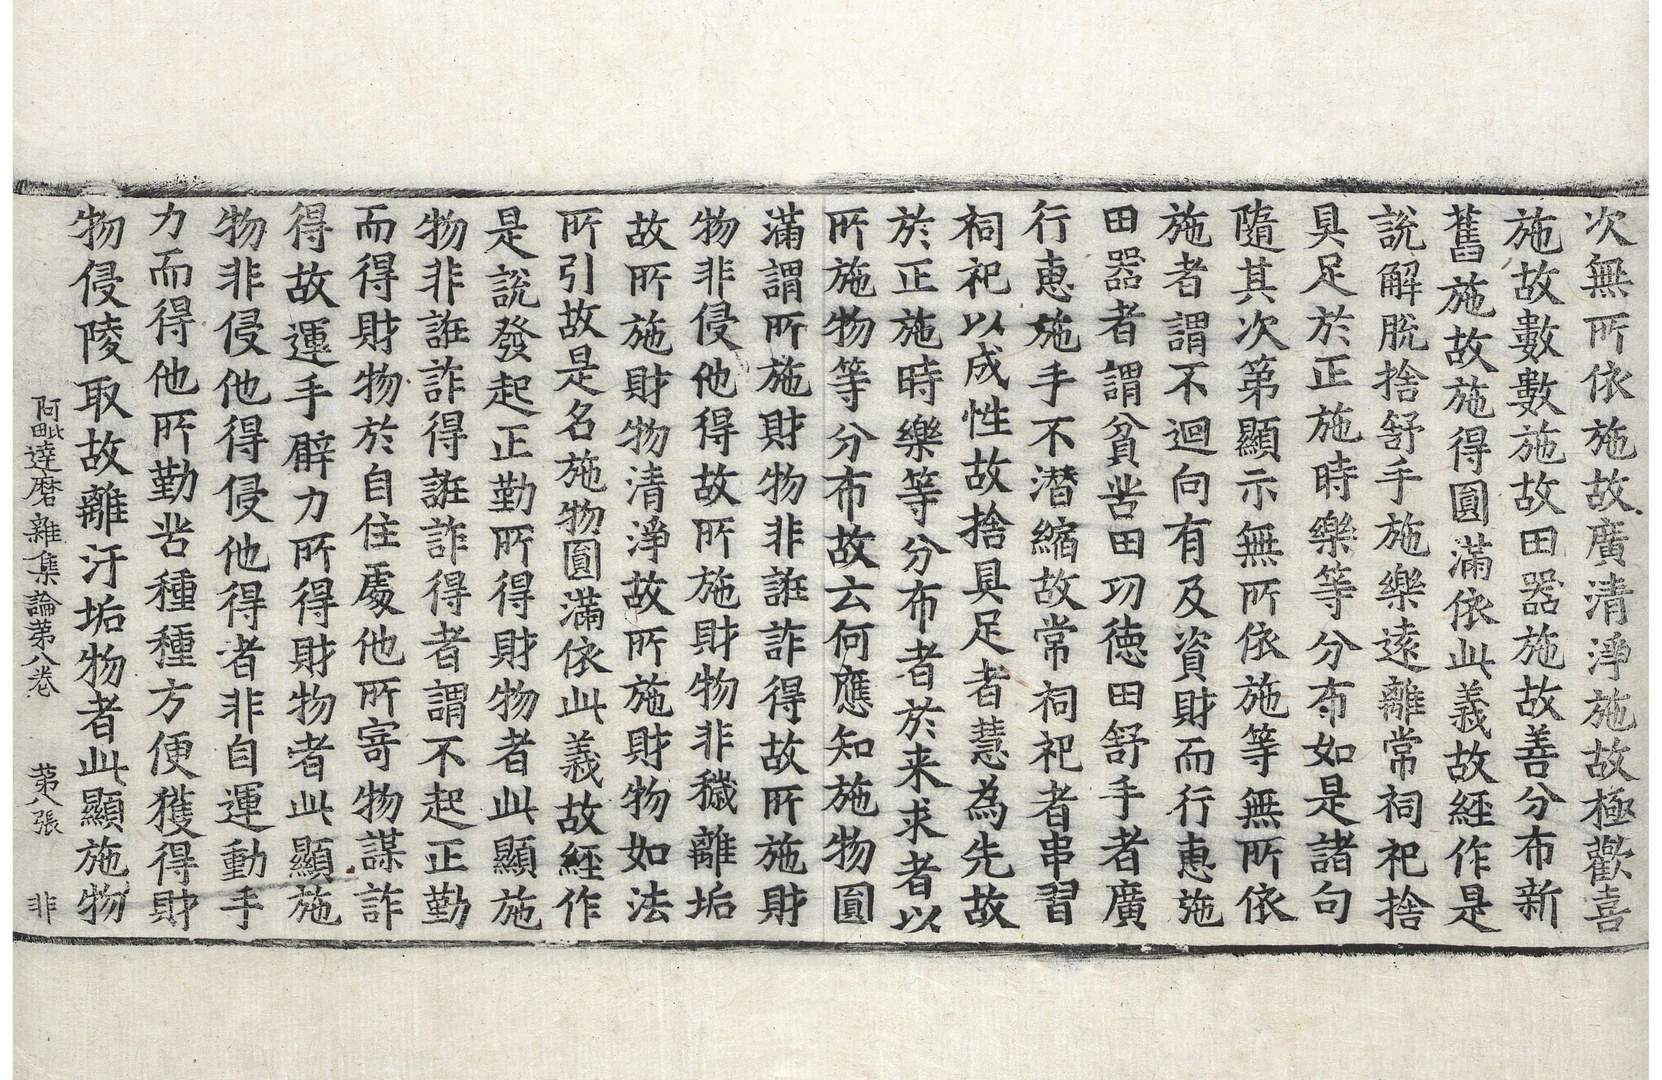 次無所依施故廣清淨施故極歡喜
施故數數施故田器施故善分布新
舊施故施得圓滿依此義故経作是
說解脫捨舒手施樂遠離常祠祀捨
具足於正施時樂等分布如是諸句
隨其次第顯示無所依施等無所依
施者謂不迴向有及資財而行惠施
田器者謂貧苦田㓛德田舒手者廣
行惠施手不潛縮故常祠祀者串習
祠祀以成性故捨具足者慧為先故
於正施時樂等分布者於来求者以
所施物等分布故云何應知施物圓
滿謂所施財物非誑詐得故所施財
物非侵他得故所施財物非穢離垢
故所施財物清淨故所施財物如法
所引故是名施物圓滿依此義故経作
是說發起正勤所得財物者此顯施
物非誑詐得誑詐得者謂不起正勤
而得財物於自住處他所寄物謀詐
得故運手臂力所得財物者此顯施
物非侵他得侵他得者非自運動手
力而得他所勤苦種種方便獲得財
物侵陵取故離汙垢物者此顯施物
阿毗達磨雜集論第八卷　第八張　非